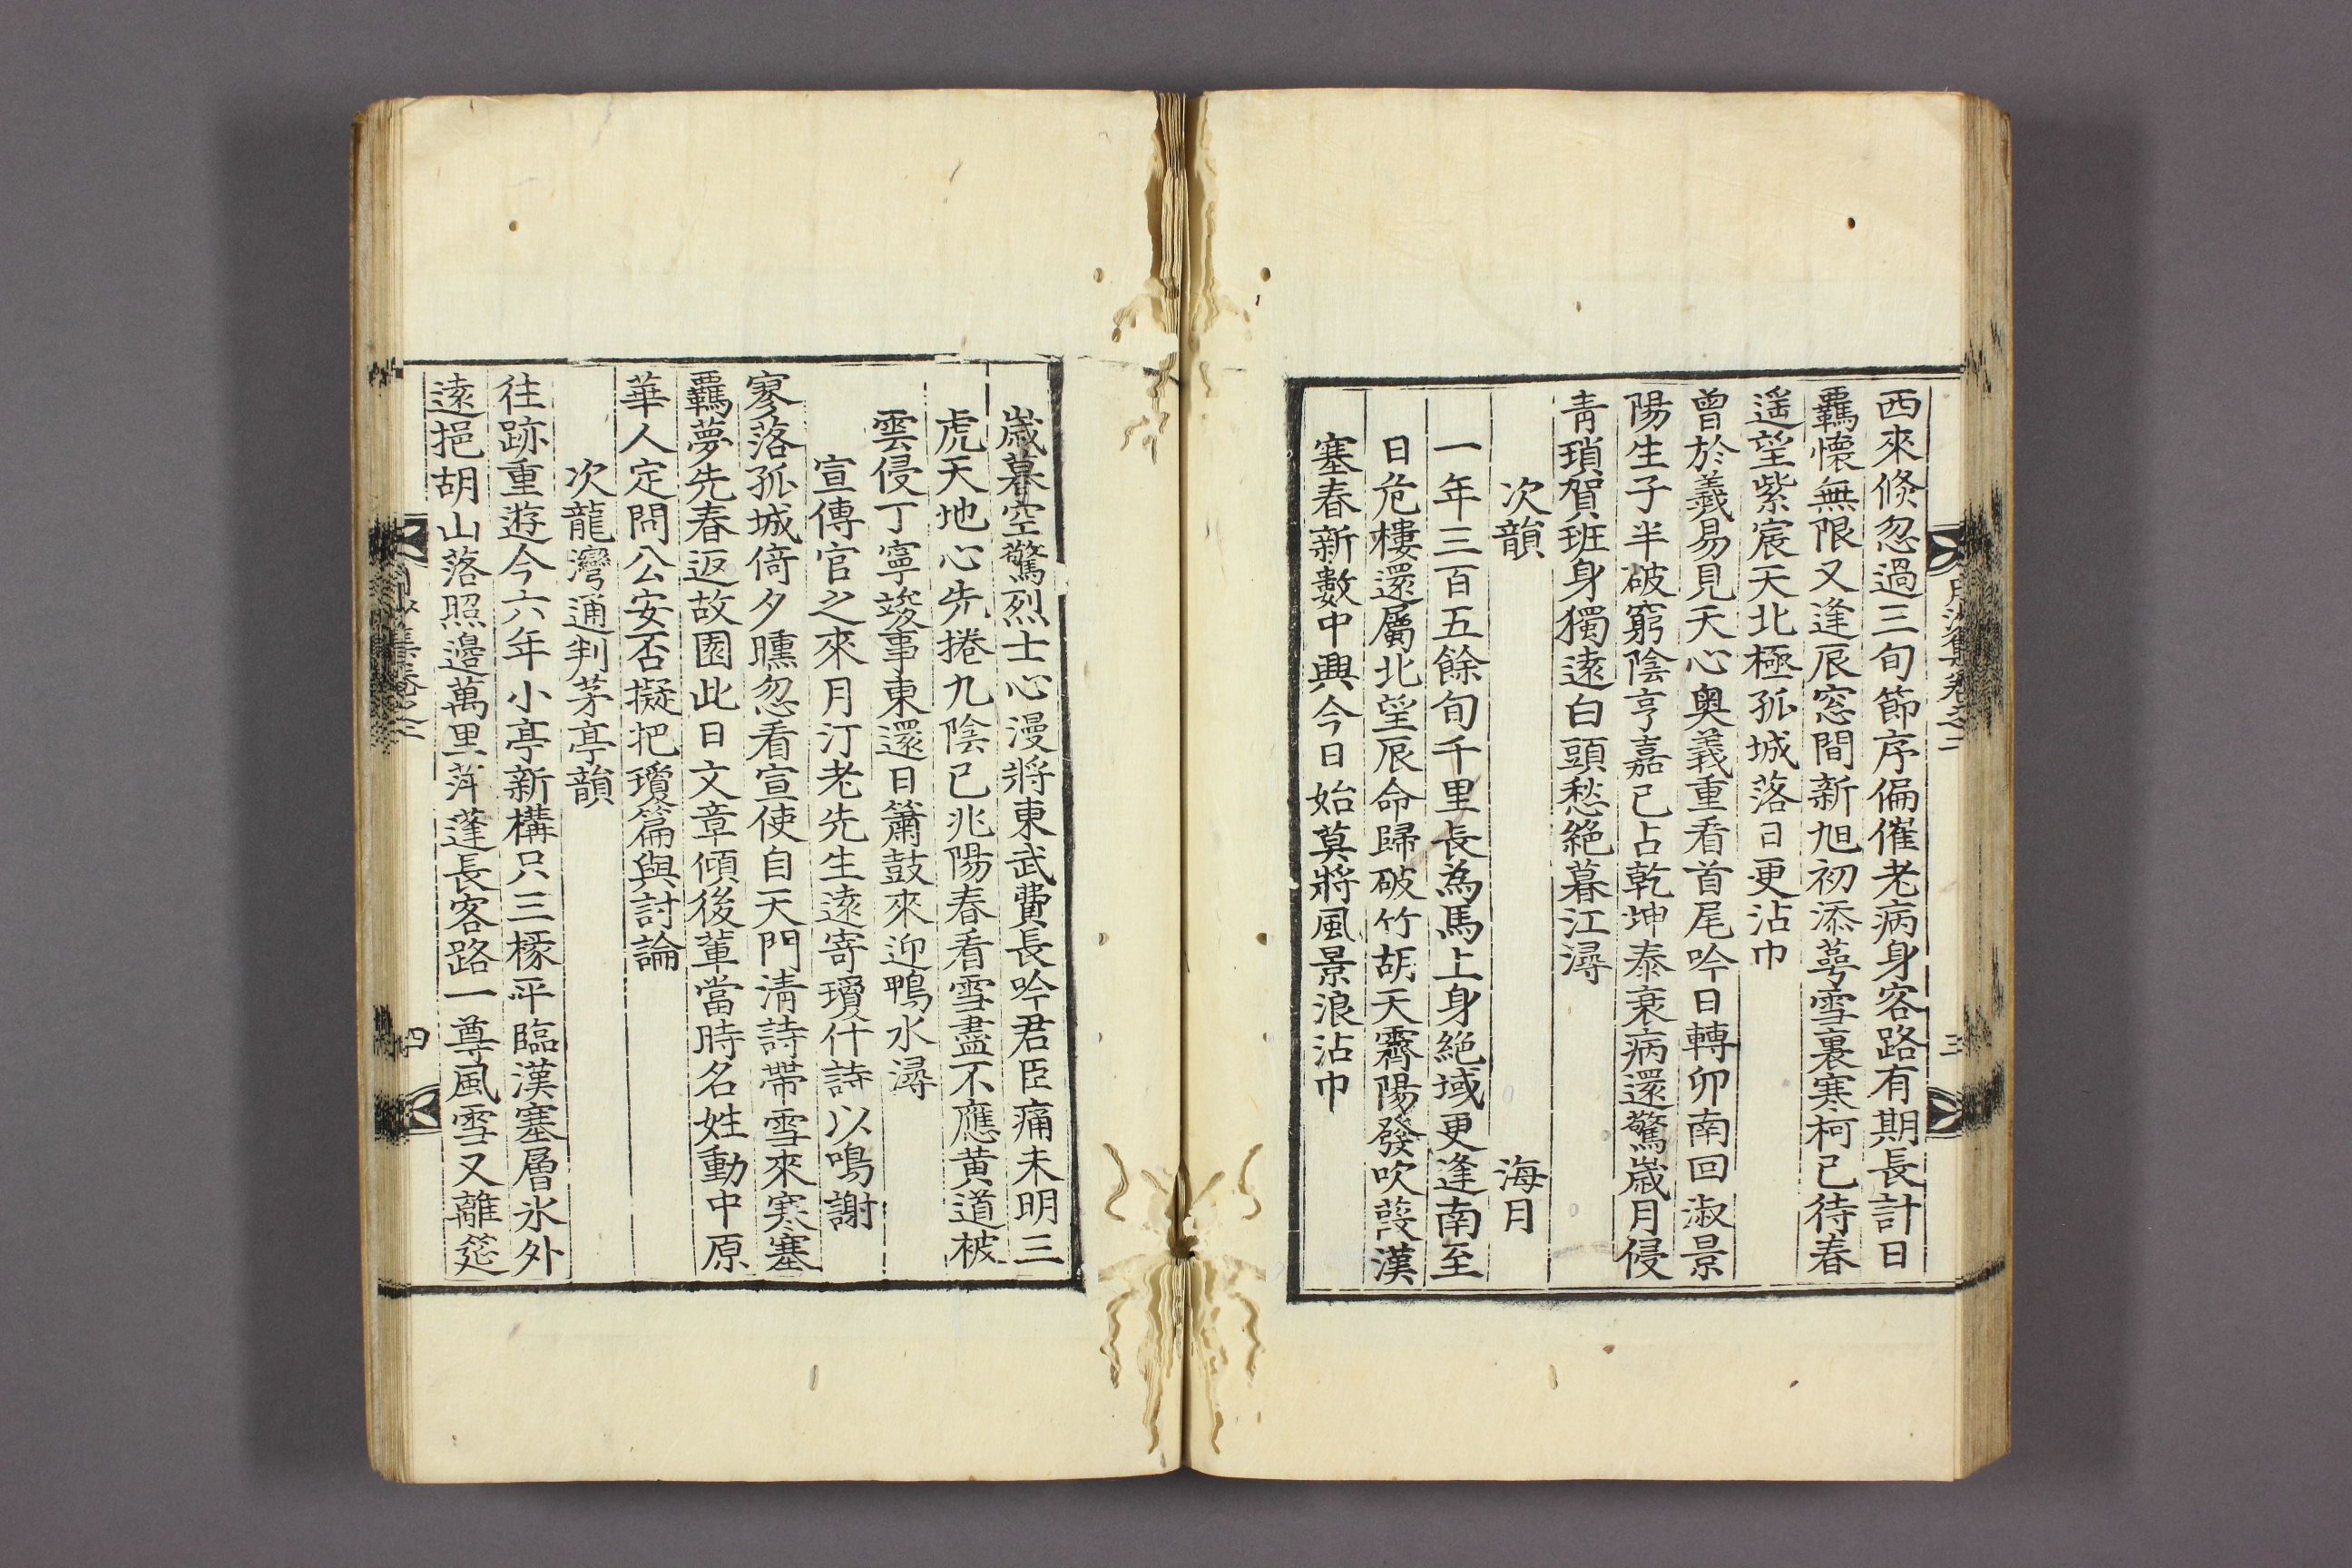 西來倏忽過三旬節序偏催老病身客路有期長計日
羈懷無限又逢辰窓間新旭初添蕚雪裏寒柯已待春
遥望紫宸天北極孤城落日更沾巾
曾於羲易見天心奧義重看首尾吟日轉卯南回淑景
陽生子半破窮陰亨嘉已占乾坤泰衰病還驚歲月侵
青瑣賀班身獨遠白頭愁絕暮江潯
次韻 海月
一年三百五餘旬千里長為馬上身絕域更逢南至
日危樓還屬北望辰命歸破竹胡天霽陽發吹葭漢
塞春新數中興今日始莫將風景浪沾巾
月沙集卷之二 三
歲暮空驚烈士心漫將東武費長吟君臣痛未明三
虎天地心先捲九陰已兆陽春看雪盡不應黄道被
雲侵丁寧竣事東還日簫鼓來迎鴨水潯
宣傳官之來月汀老先生遠寄瓊什詩以鳴謝
寥落孤城倚夕曛忽看宣使自天門淸詩帶雪來寒塞
羈夢先春返故園此日文章傾後輩當時名姓動中原
華人定問公安否擬把瓊篇與討論
次龍灣通判茅亭韻
往跡重遊今六年小亭新構只三椽平臨漢塞層氷外
遠挹胡山落照邊萬里萍蓬長客路一尊風雪又離筵
集卷之二 四